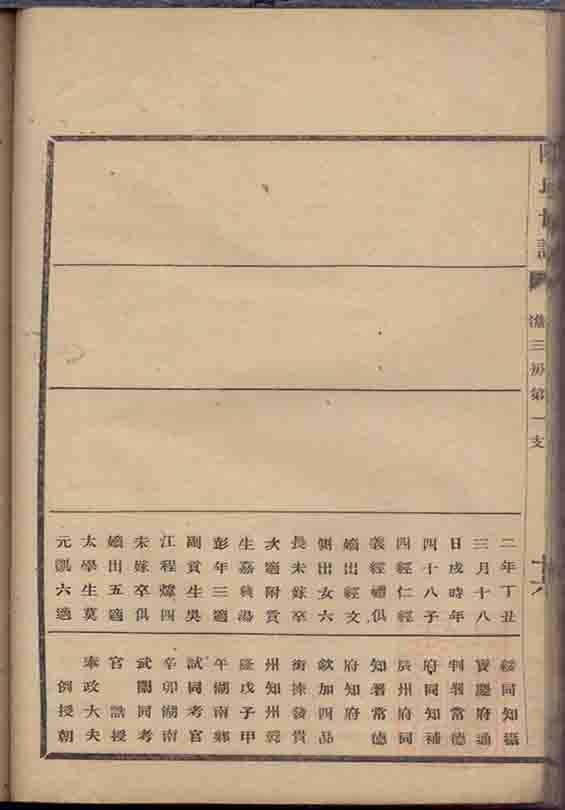 漁三房第一支
二年丁丑
三月十八
日戌時年
四十八子
四經仁經
義經禮俱
嫡出經文
側出女六
長未嫁卒
次適附貢
生嘉興湯
彭年三適
副貢生吳
江程煒四
未嫁卒俱
嫡出五適
太學生莫
元凱六適
綏同知攝
寶慶府通
判署常德
府同知補
辰州府同
知署常德
府知府
欽加四品
銜揀發貴
州知州乾
隆戊子甲
午湖南鄉
試同考官
辛卯湖南
武闈同考
官 誥授
奉政大夫
例授朝